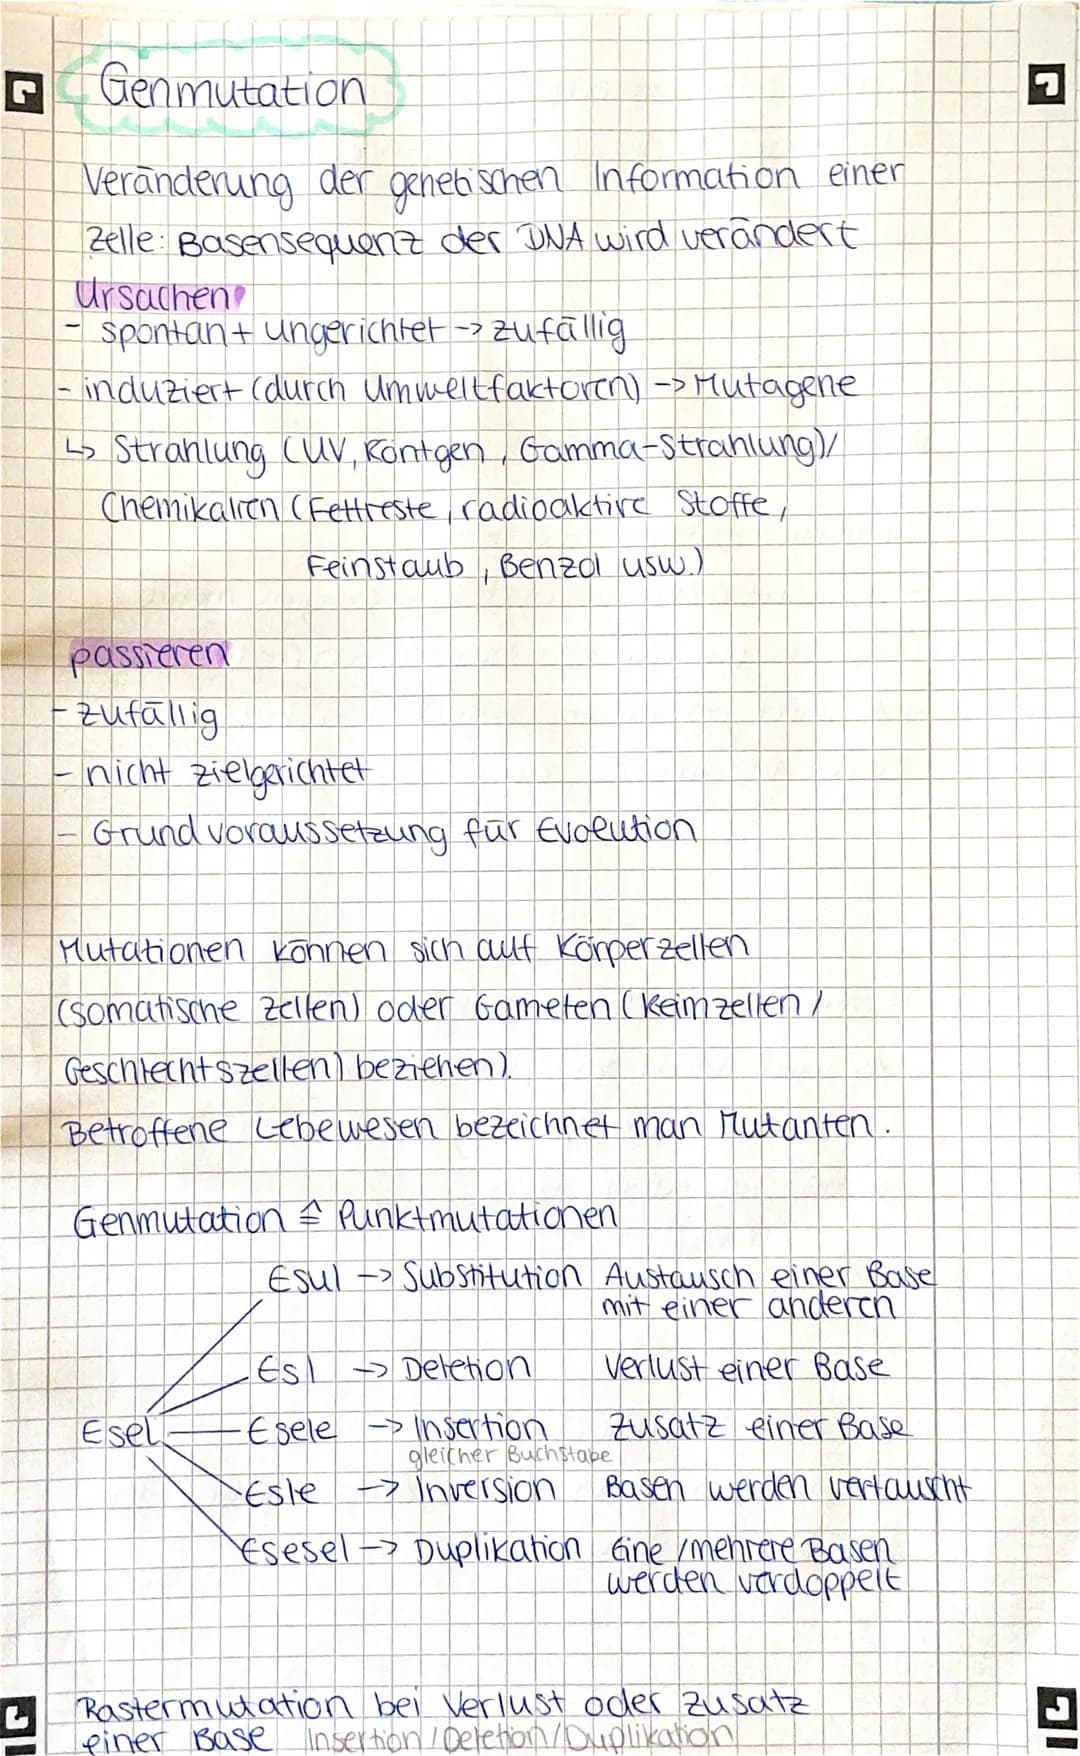 Genmutation
Veränderung der genetischen Information einer
Zelle: Basensequenz der DNA wird verändert
Ursachen
- spontan + ungerichtet -> zufällig
- induziert (durch Umweltfaktoren) -> Mutagene
↳ Strahlung (UV, Röntgen, Gamma-Strahlung)/
Chemikalien (Fettreste, radioaktive Stoffe,
Feinstaub, Benzol usw.)
passieren
- zufällig
- nicht zielgerichtet
- Grundvoraussetzung für Evolution
Mutationen können sich auf Körperzellen
(somatische Zellen) oder Gameten (Keimzellen /
Geschlechtszellen) beziehen).
Betroffene Lebewesen bezeichnet man Mutanten.
Genmutation ≙ Punktmutationen
Esul -> Substitution Austausch einer Base
mit einer anderen
Esl -> Deletion Verlust einer Base
Esel Esele -> Insertion Zusatz einer Base
gleicher Buchstabe
Esle -> Inversion Basen werden vertauscht
Esesel -> Duplikation Eine / mehrere Basen
werden verdoppelt
Rastermutation bei Verlust oder Zusatz
einer Base Insertion / Deletion / Duplikation